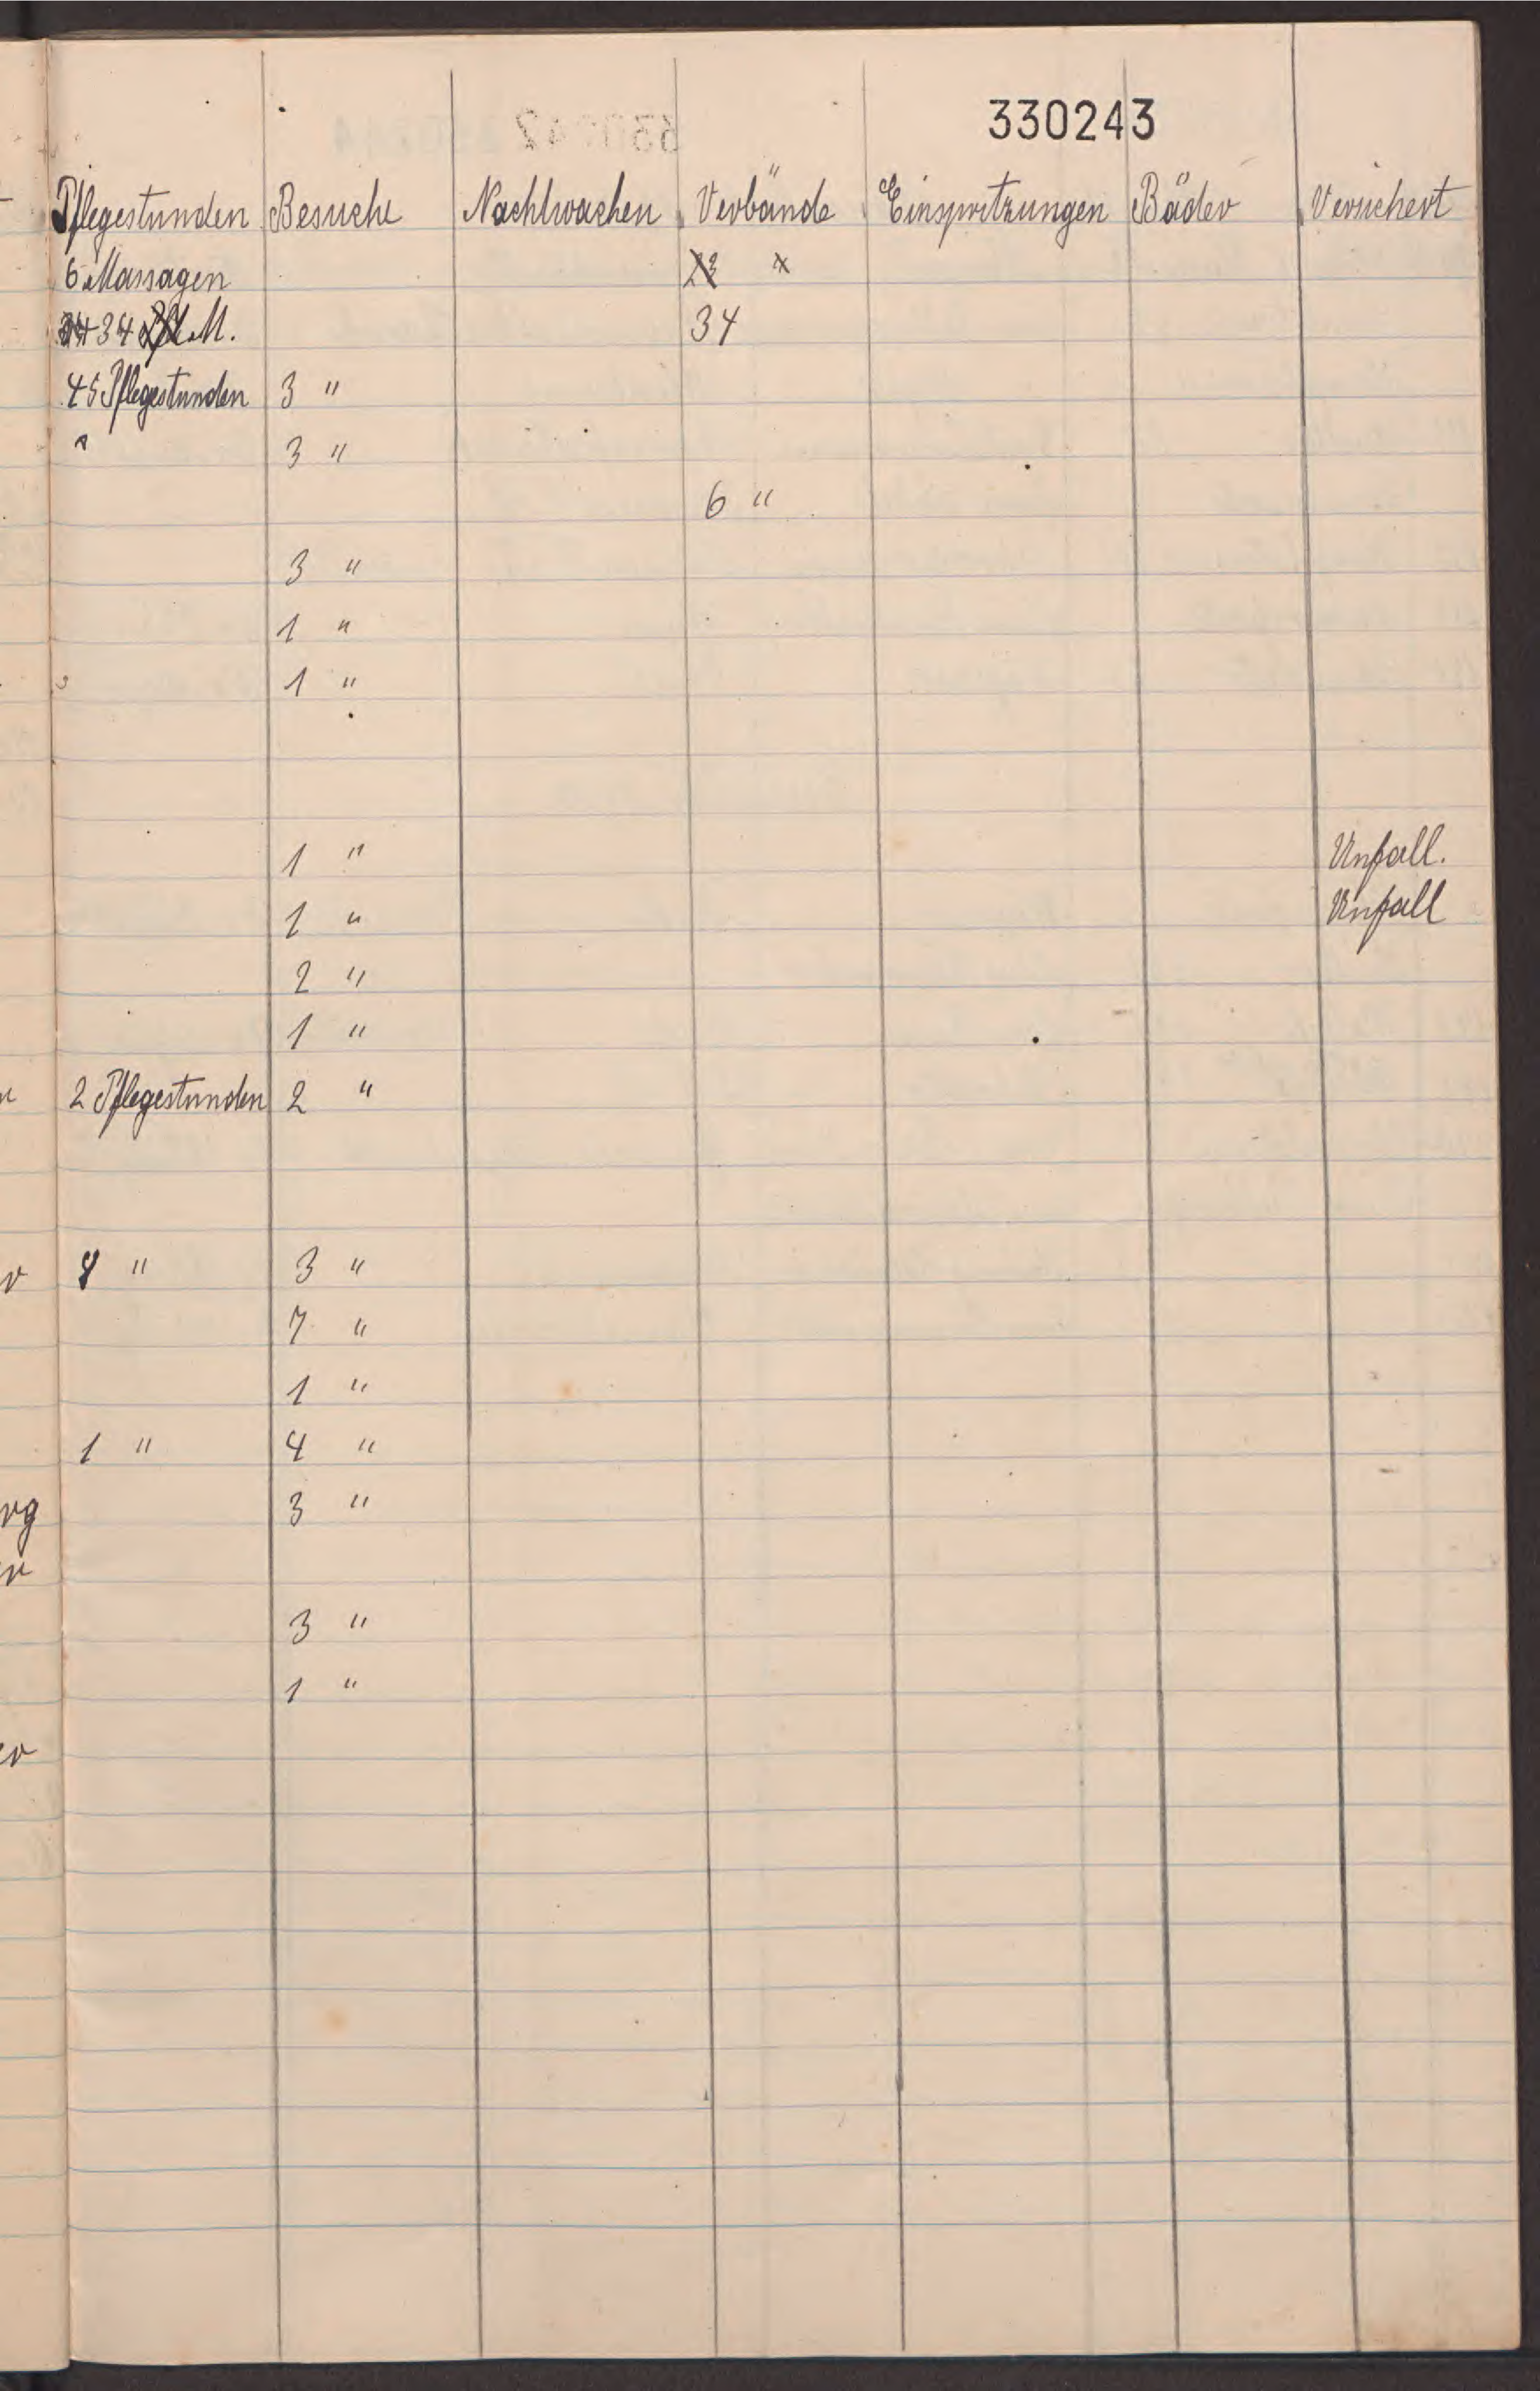 330243
Pflegestunden Besuche Nachtwachen Verbände Einspritzungen Bäder Versichert
6 Massagen
34 M. 34
45 Pflegestunden 3 "
3 "
6 "
3 "
1 "
1 "
1 " Unfall.
1 " Unfall
2 "
1 "
2 Pflegestunden 2 "
8 " 3 "
7 "
1 "
1 " 4 "
rg 3 "
3 "
1 "